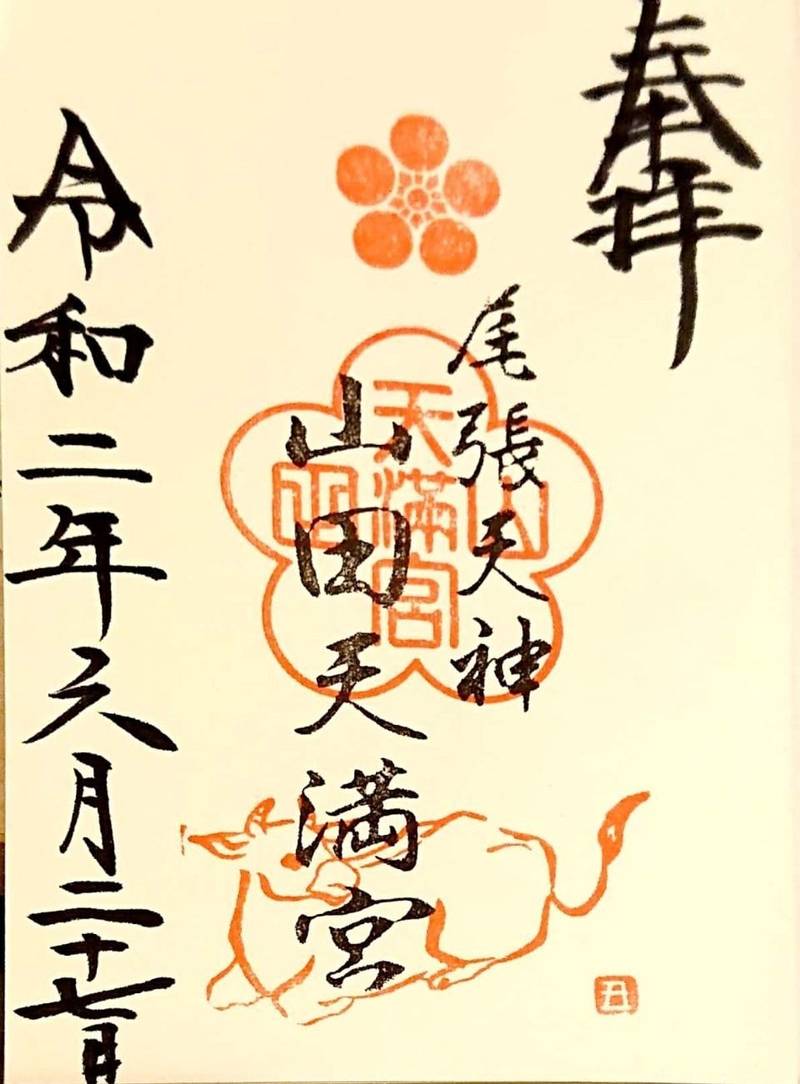 奉拝
尾張天神
山田天満宮
山田
天満宮
令和二年六月二十七日
丑